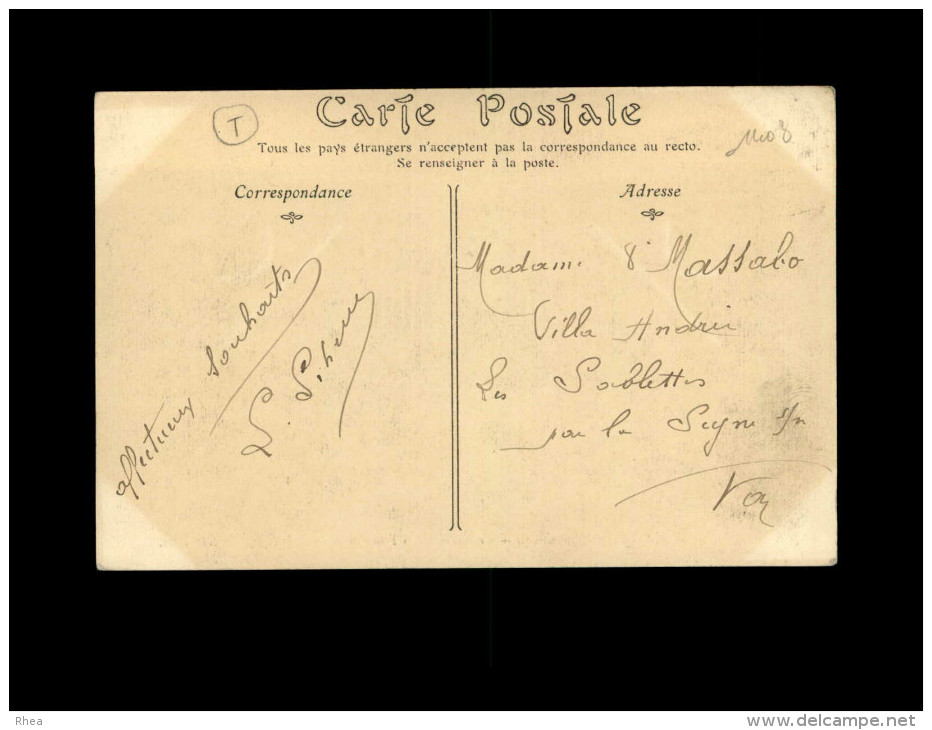 Carte Postale
T
Tous les pays étrangers n'acceptent pas la correspondance au recto.
Se renseigner à la poste.
Correspondance
affectueux souhaits
L.
Adresse
Madame Massabo
Villa
Les Sablettes
par la Seyne s/m
Var
Rhea
www.delcampe.net